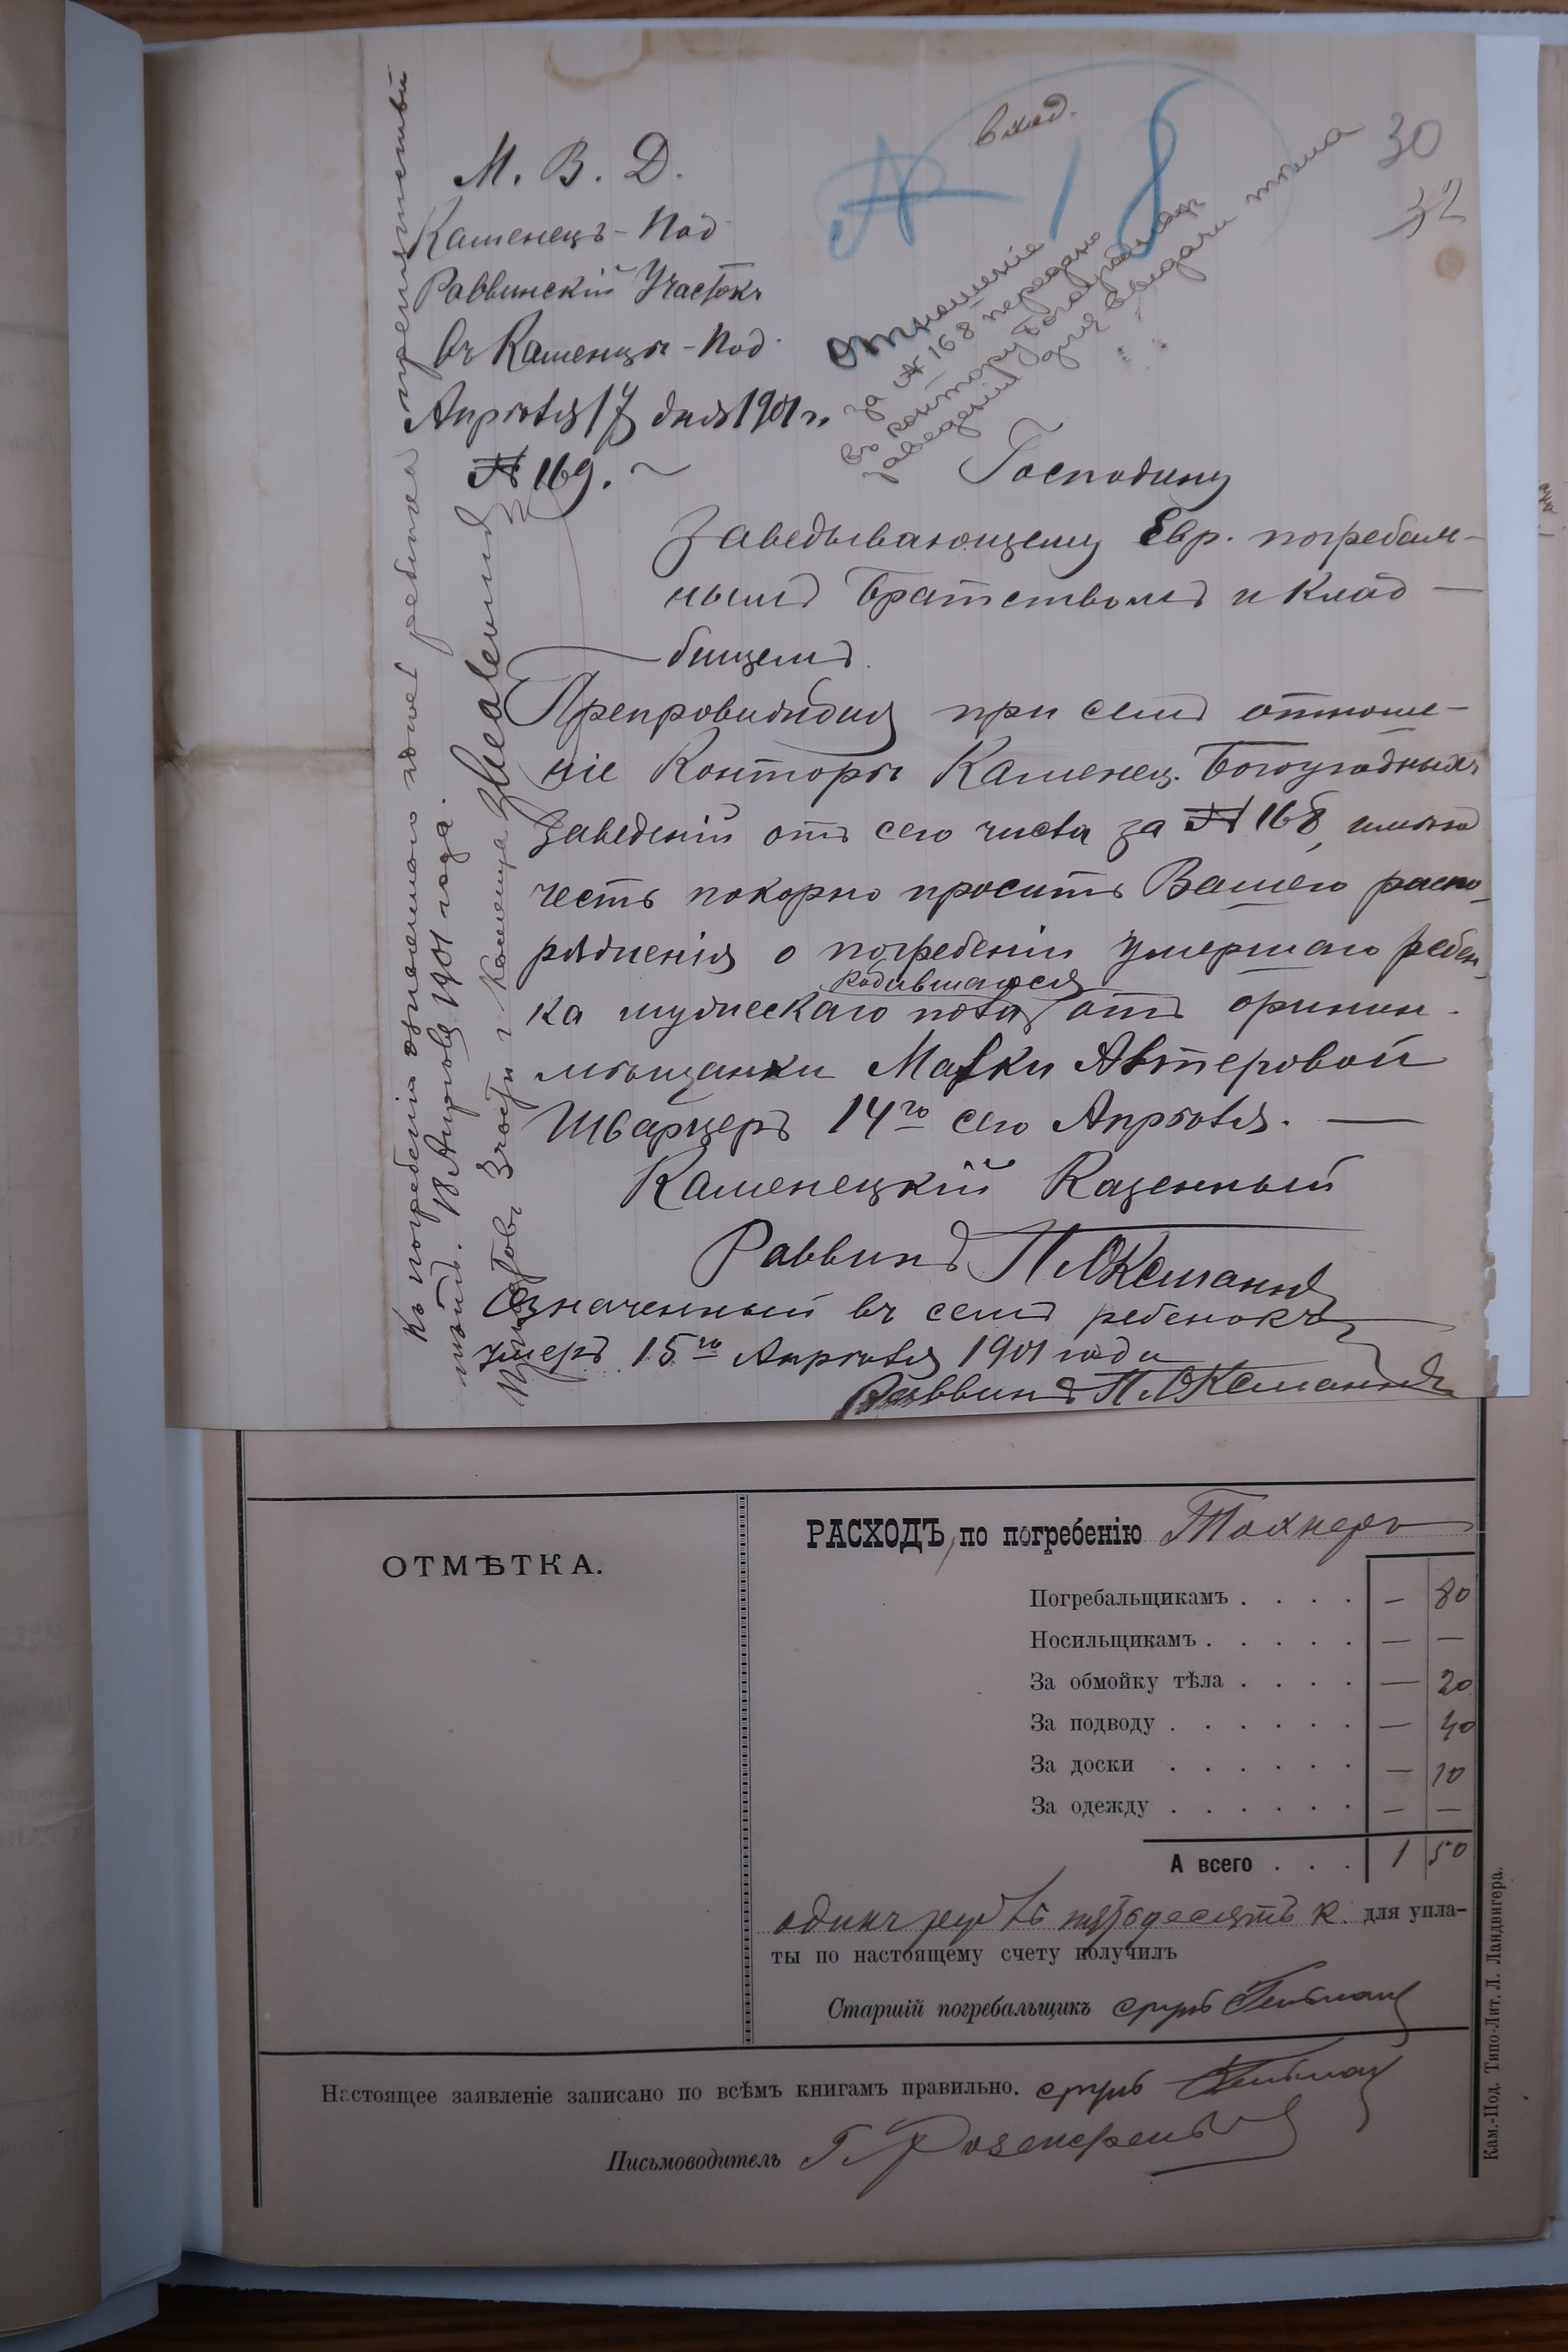 вход.
№ 18
30
32
М. В. Д.
Каменецъ-Под.
Раввинскій Участокъ
въ Каменцѣ-Под.
Апрѣля 17 дня 1901 г.
№ 169.
Отношеніе
за № 168 передано
въ контору Богоугодныхъ
заведеній для выдачи тѣла
Господину
Завѣдывающему Евр. погребаль-
нымъ Братствомъ и Клад-
бищемъ.
Препровождая при семъ отноше-
ніе Конторы Каменец. Богоугодныхъ
Заведеній отъ сего числа за № 168, имѣю
честь покорно просить Вашего распо-
ряженія о погребеніи умершаго ребен-
ка мужескаго пола родившагося отъ оринин.
мѣщанки Малки Автеровой
Шварцеръ 14го сего Апрѣля. —
Каменецкій Казенный
Раввинъ П. Оксманъ
Означенный въ семъ ребенокъ
умеръ 15го Апрѣля 1901 года
Раввинъ П. Оксманъ
Къ погребенію означеннаго ребенка препятствій
нѣтъ. 18 Апрѣля 1901 года.
Приставъ 2 части г. Каменца
ОТМѢТКА.
РАСХОДЪ по погребенію Тахнеръ
Погребальщикамъ . . . . — 80
Носильщикамъ . . . . . — —
За обмойку тѣла . . . . — 20
За подводу . . . . . . — 40
За доски . . . . . . — 10
За одежду . . . . . . — —
А всего . . . 1 50
одинъ рубль пятьдесятъ к. для упла-
ты по настоящему счету получилъ
Старшій погребальщикъ Сруль Гельман
Настоящее заявленіе записано по всѣмъ книгамъ правильно. Сруль Гельман
Письмоводитель Г. Розенфельд
Кам.-Под. Типо-Лит. Л. Ландвигера.